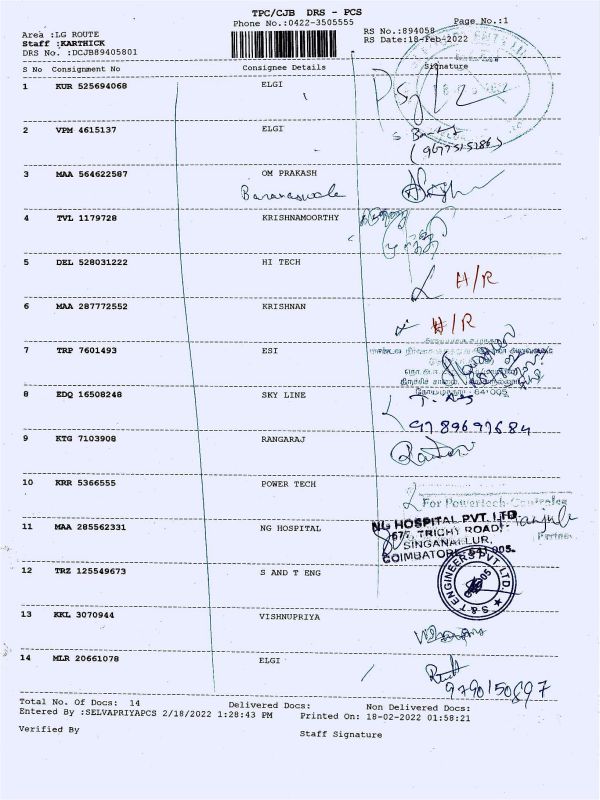 TPC/CJB DRS - PCS
Phone No.:0422-3505555
Page No.:1
Area :LG ROUTE
RS No.:894058
Staff :KARTHICK
RS Date:18-Feb-2022
DRS No. :DCJB89405801
S No Consignment No Consignee Details Signature
1 KUR 525694068 ELGI
2 VPM 4615137 ELGI
3 MAA 564622587 OM PRAKASH
4 TVL 1179728 KRISHNAMOORTHY
5 DEL 528031222 HI TECH
H/R
6 MAA 287772552 KRISHNAN
H/R
7 TRP 7601493 ESI
8 EDQ 16508248 SKY LINE
9789697684
9 KTG 7103908 RANGARAJ
10 KRR 5366555 POWER TECH
For Powertech Controles
Partner
11 MAA 285562331 NG HOSPITAL
NG HOSPITAL PVT. LTD.
577, TRICHY ROAD,
SINGANALLUR,
COIMBATORE-641 005.
12 TRZ 125549673 S AND T ENG
S & T ENGINEERS PVT. LTD.
13 KKL 3070944 VISHNUPRIYA
14 MLR 20661078 ELGI
9790150897
Total No. Of Docs: 14 Delivered Docs: Non Delivered Docs:
Entered By :SELVAPRIYAPCS 2/18/2022 1:28:43 PM Printed On: 18-02-2022 01:58:21
Verified By Staff Signature